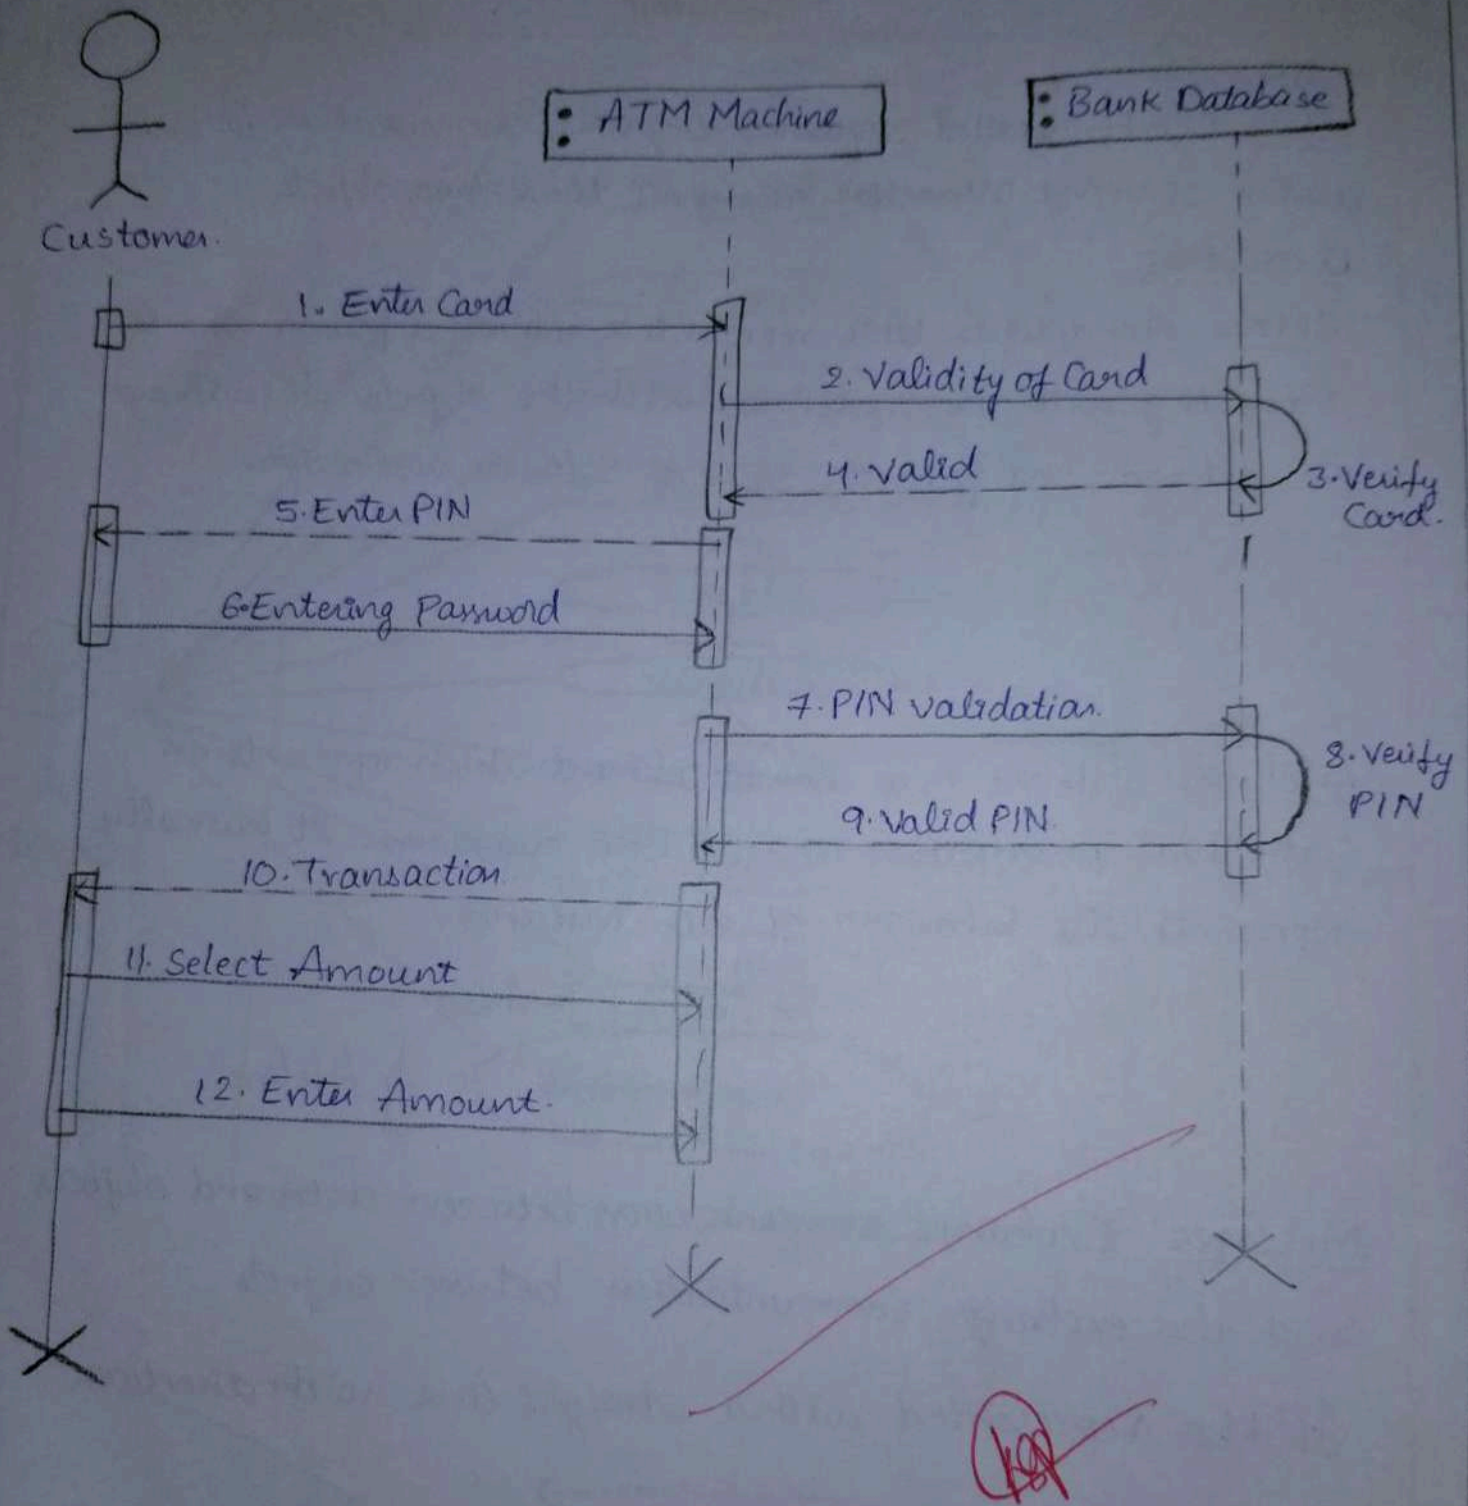 : ATM Machine
: Bank Database
Customer.
1. Enter Card
2. Validity of Card
3. Verify
Card.
4. Valid
5. Enter PIN
6. Entering Password
7. PIN validation.
8. Verify
PIN
9. Valid PIN.
10. Transaction
11. Select Amount
12. Enter Amount.